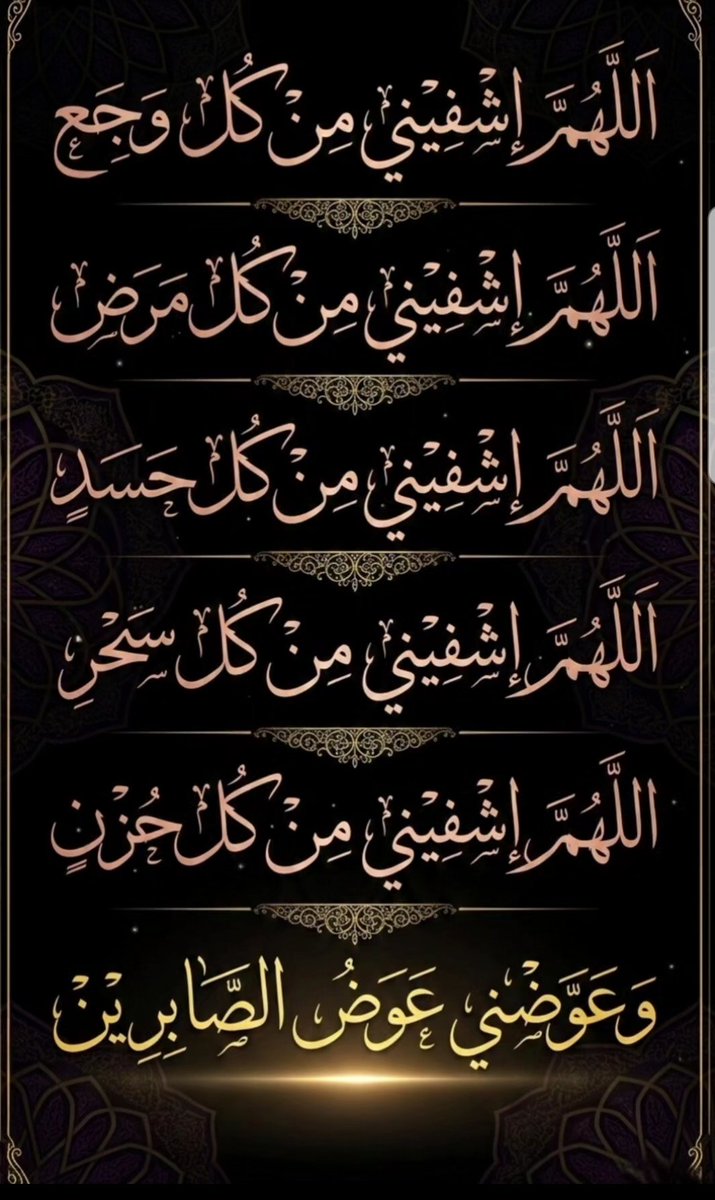 اَللَّهُمَّ إشْفِيْني مِنْ كُل وَجَع
اَللَّهُمَّ إشْفِيْني مِنْ كُل مَرَض
اَللَّهُمَّ إشْفِيْني مِنْ كُل حَسَدٍ
اَللَّهُمَّ إشْفِيْني مِنْ كُل سَحْرِ
اللَّهُمَّ إشْفِيْني مِنْ كُل حُزْنٍ
وَعَوَّضْني عَوَضُ الصَّابِرِيْنْ